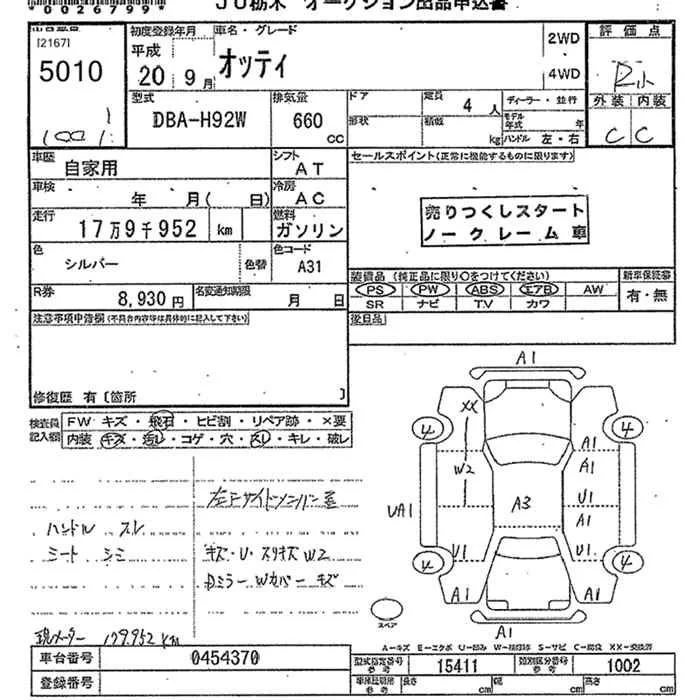 *0026799*
JU栃木 オークション出品申込書
出品番号
[2167]
5010
1001
初度登録年月
平成
20 9月
車名・グレード
オッティ
2WD
4WD
評価点
外装 内装
C C
型式
DBA-H92W
排気量
660
CC
ドア
形状
定員
4 人
積載
kg
ディーラー・並行
モデル年式 年
ハンドル 左・右
車歴
自家用
シフト
AT
車検
年 月( 日)
冷房
AC
走行
17万9千952 km
燃料
ガソリン
色
シルバー
色替
色コード
A31
R券
8,930 円
名変通知期限
月 日
セールスポイント(正常に機能するものに限ります)
売りつくしスタート
ノークレーム車
装備品 (純正品に限り○をつけてください)
新車保証書
PS PW ABS エアB AW
SR ナビ T.V カワ
有・無
注意事項申告欄(不具合内容等は具体的に記入して下さい)
後日品
修復歴 有 [箇所 ]
検査員
記入欄
FW キズ・飛石・ヒビ割・リペア跡・×要
内装 キズ・汚レ・コゲ・穴・スレ・キレ・破レ
ハンドル スレ
シート シミ
キズ・U・スリキズW2
Dミラー Wカバー キズ
現メーター 179,952 KM
A1
XX
4 4
A1
W2
A1
UA1
A3
U1
A1
U1 U1
4 4
A1 A1
A1
スペア
A-キズ E-エクボ U-凹み W-補修跡 S-サビ C-腐蝕 XX-交換済
車台番号
0454370
登録番号
型式指定番号
参考
15411
類別区分番号
参考
1002
車庫証明用
参考
長さ cm
幅 cm
高さ cm